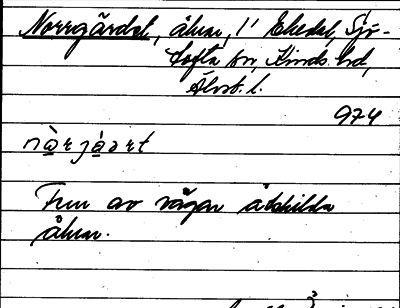 Norrgärdet, åkrar, 1/1 Ekedal, Sjö-
tofta sn, Kinds hd,
Älvsb. l.
974
nàrjáart
Fem av vägar åtskilda
åkrar.